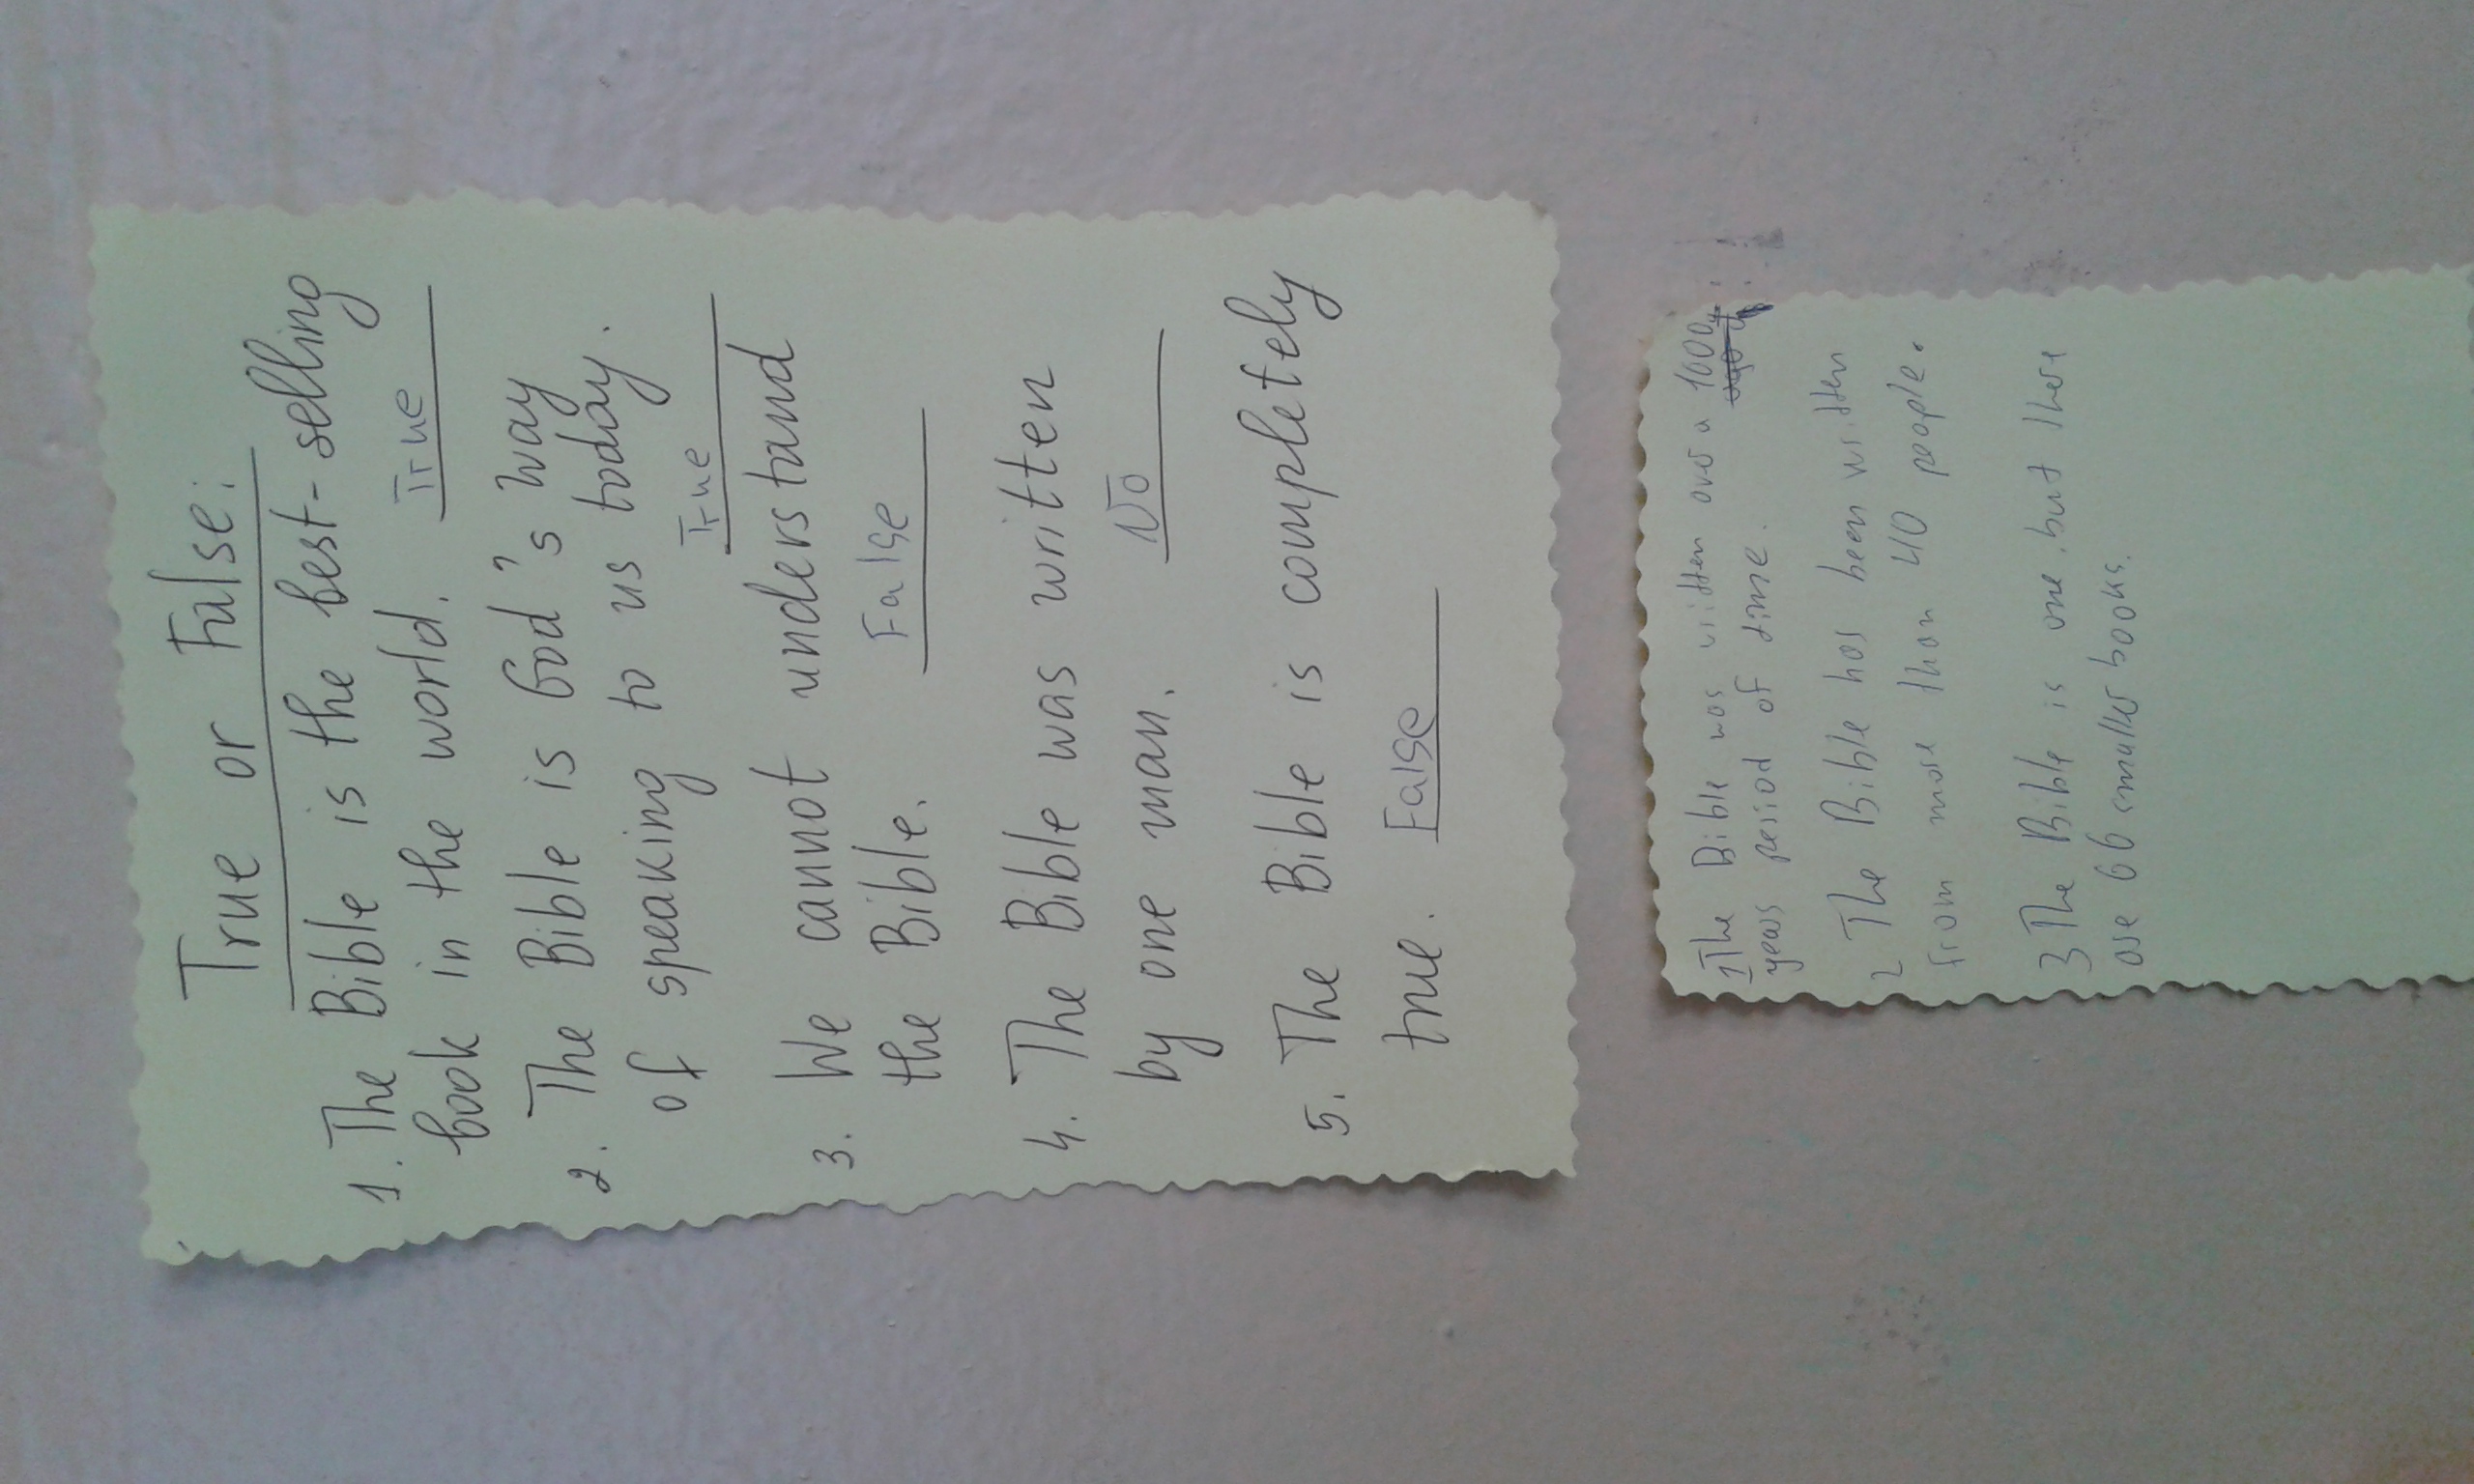 True or False:
1. The Bible is the best-selling
book in the world. True
2. The Bible is God's way
of speaking to us today.
True
3. We cannot understand
the Bible. False
4. The Bible was written
by one man. No
5. The Bible is completely
true. False
1 The Bible was written over a 1000
years period of time.
2 The Bible has been written
from more than 40 people.
3 The Bible is one, but there
are 66 smaller books.